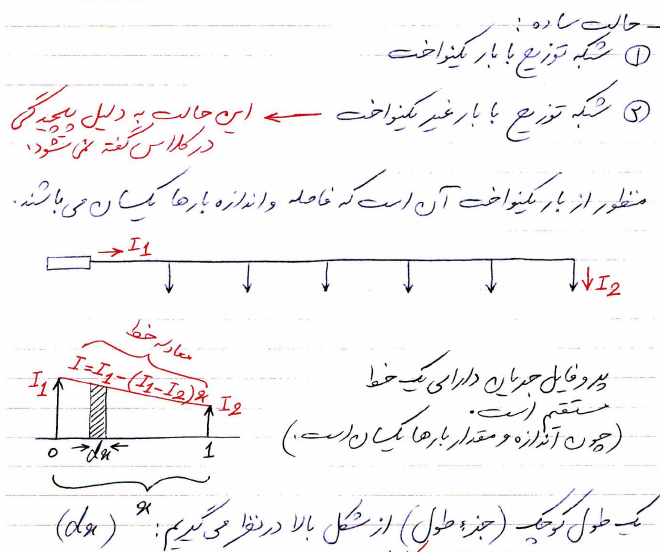 - حالت ساده:
① شبکه توزیع با بار یکنواخت
② شبکه توزیع با بار غیر یکنواخت ← این حالت به دلیل پیچیدگی
در کلاس گفته نمی‌شود.
منظور از بار یکنواخت آن است که فاصله و اندازه بارها یکسان می‌باشند.
I₁
I₂
معادله خط
I=I₁-(I₁-I₂)x
I₁
I₂
0
dx
1
x
پروفایل جریان دارای یک خط
مستقیم است.
(چون اندازه و مقدار بارها یکسان است.)
یک طول کوچک (جزء طول) از شکل بالا در نظر می‌گیریم: (dx)